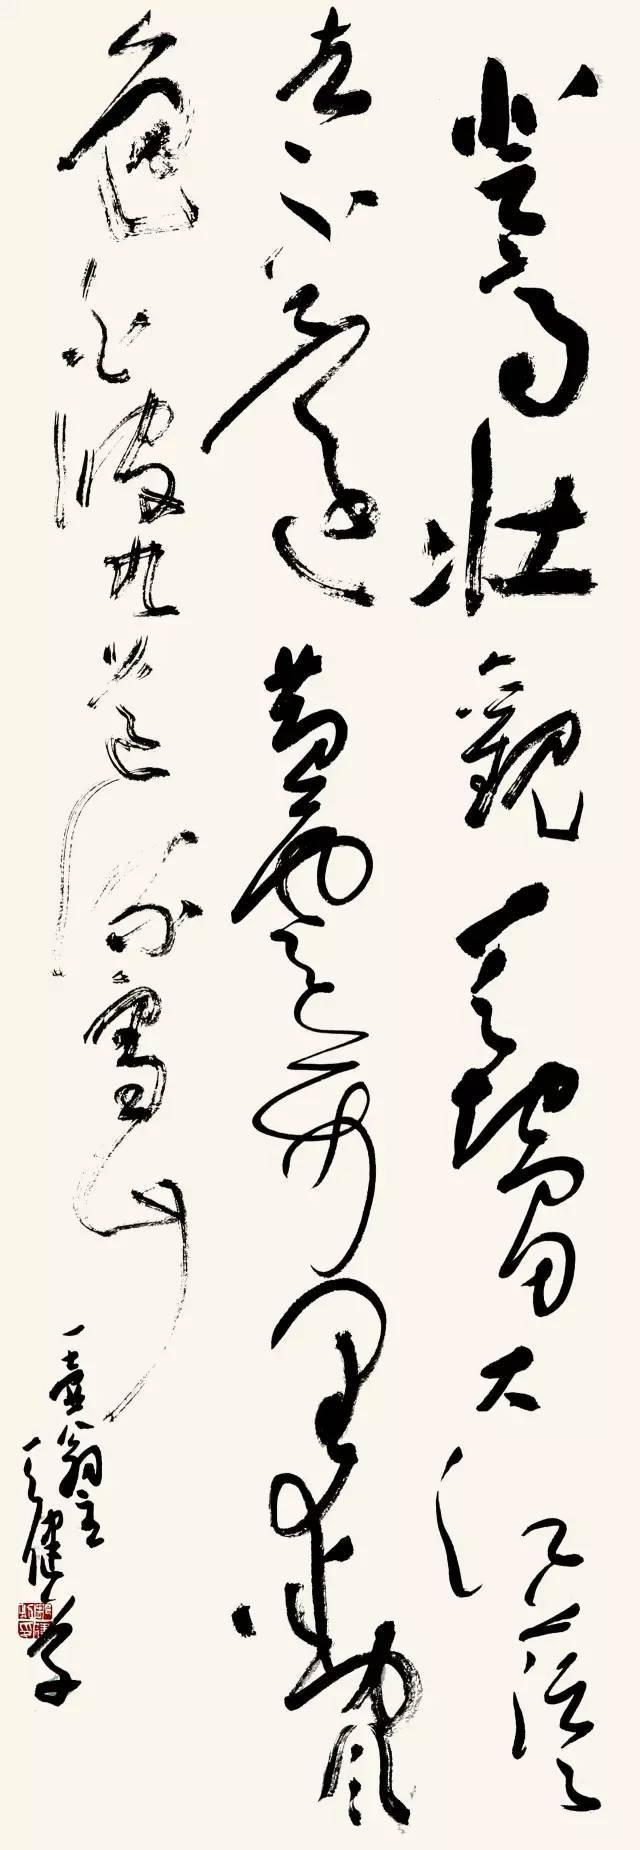 登高壮觀天地間大江茫茫
去不還黄雲万里動風
色白波九道流雪山
一壺翁主
天健草